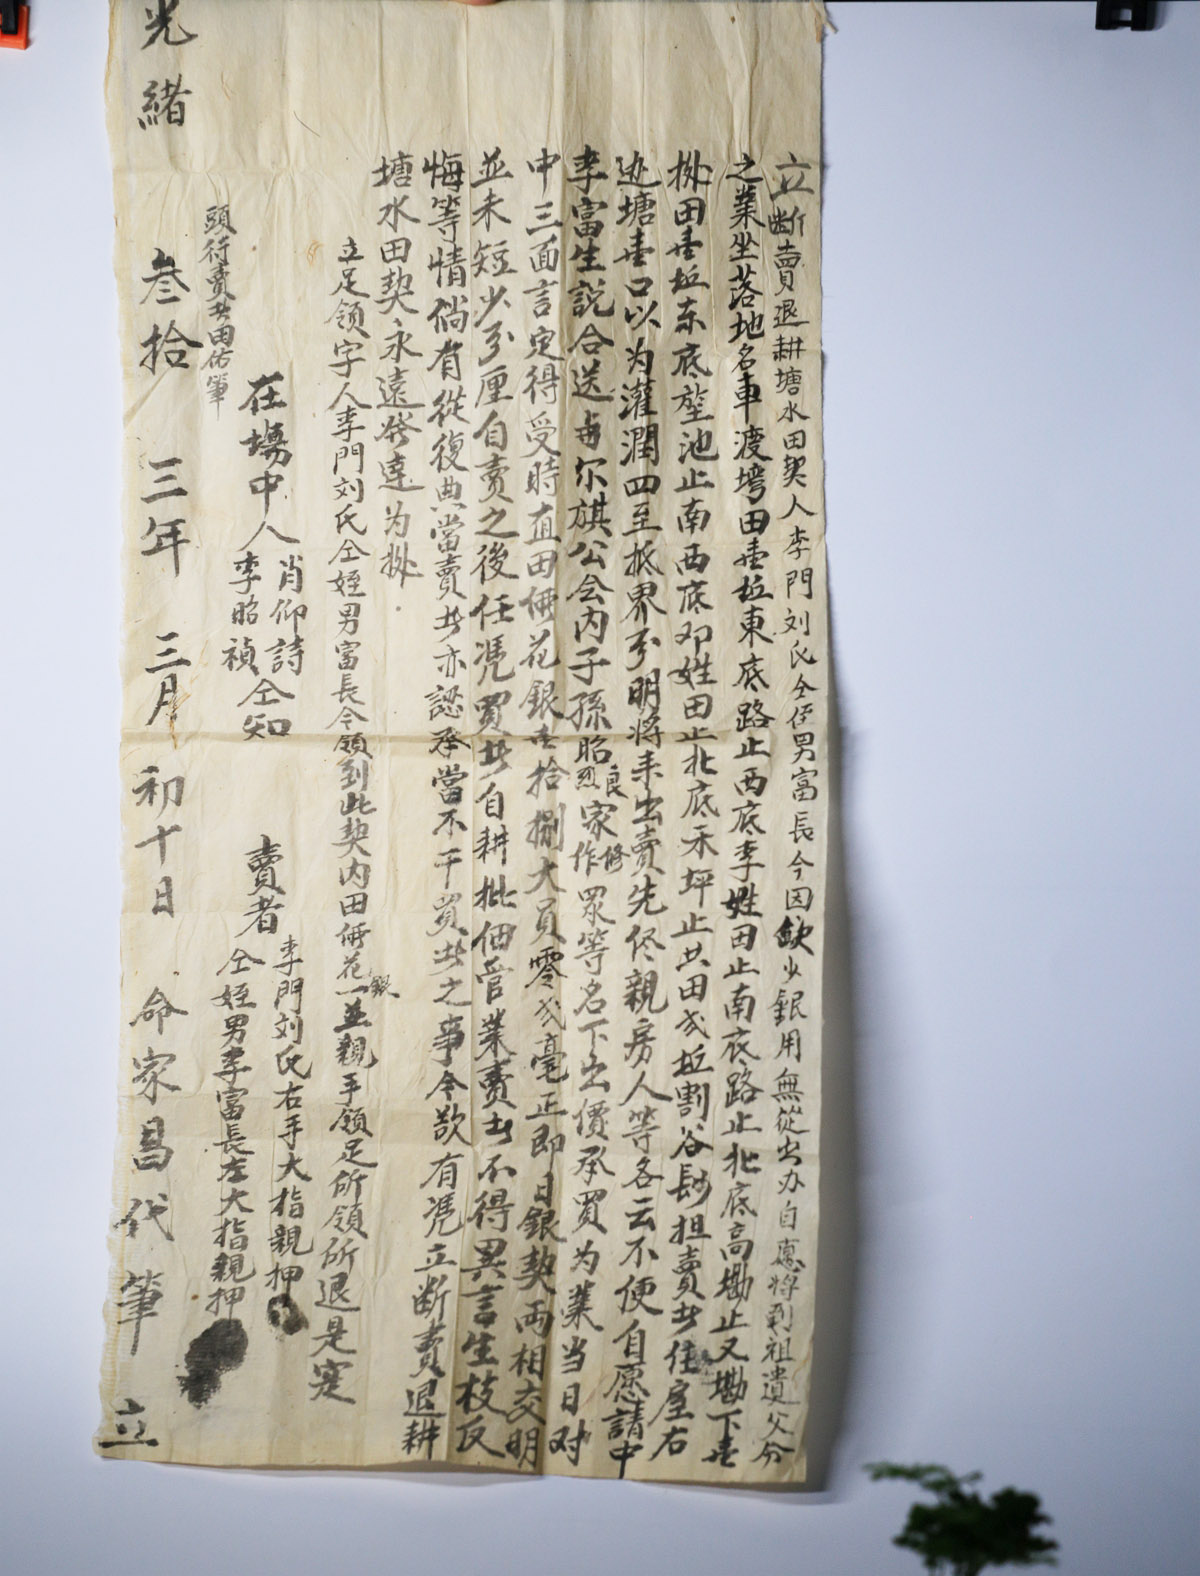 立斷賣退耕塘水田契人李門刘氏仝侄男富長今因缺少銀用無從出办自愿將到祖遺父分
之業坐落地名車渡塆田壹坵東底路止西底李姓田止南底路止北底高墈止又墈下壹
拁田壹坵东底塟池止南西底邓姓田止北底禾坪止共田弍坵割谷尉担賣者住屋右
边塘壹口以为灌潤四至抵界分明將来出賣先侭親房人等各云不便自愿請中
李富生説合送与尔旗公会内子孫昭良烈家修作眾等名下出價承買为業当日对
中三面言定得受時直田価花銀壹拾捌大員零弍毫正即日銀契両相交明
並未短少分厘自賣之後任凴買者自耕批佃管業賣者不得異言生枝反
悔等情倘有從復典當賣者亦認承當不干買者之事今欲有凴立斷賣退耕
塘水田契永遠發達为拠
立足領字人李門刘氏仝姪男富長今領到此契内田価花銀一並親手領足所領所退是寔
在塲中人 肖仰詩 李昭禎 仝知
賣者 李門刘氏右手大指親押 仝姪男李富長左大指親押
頭行賣者由佑筆
光緒叁拾三年三月初十日命家昌代筆立